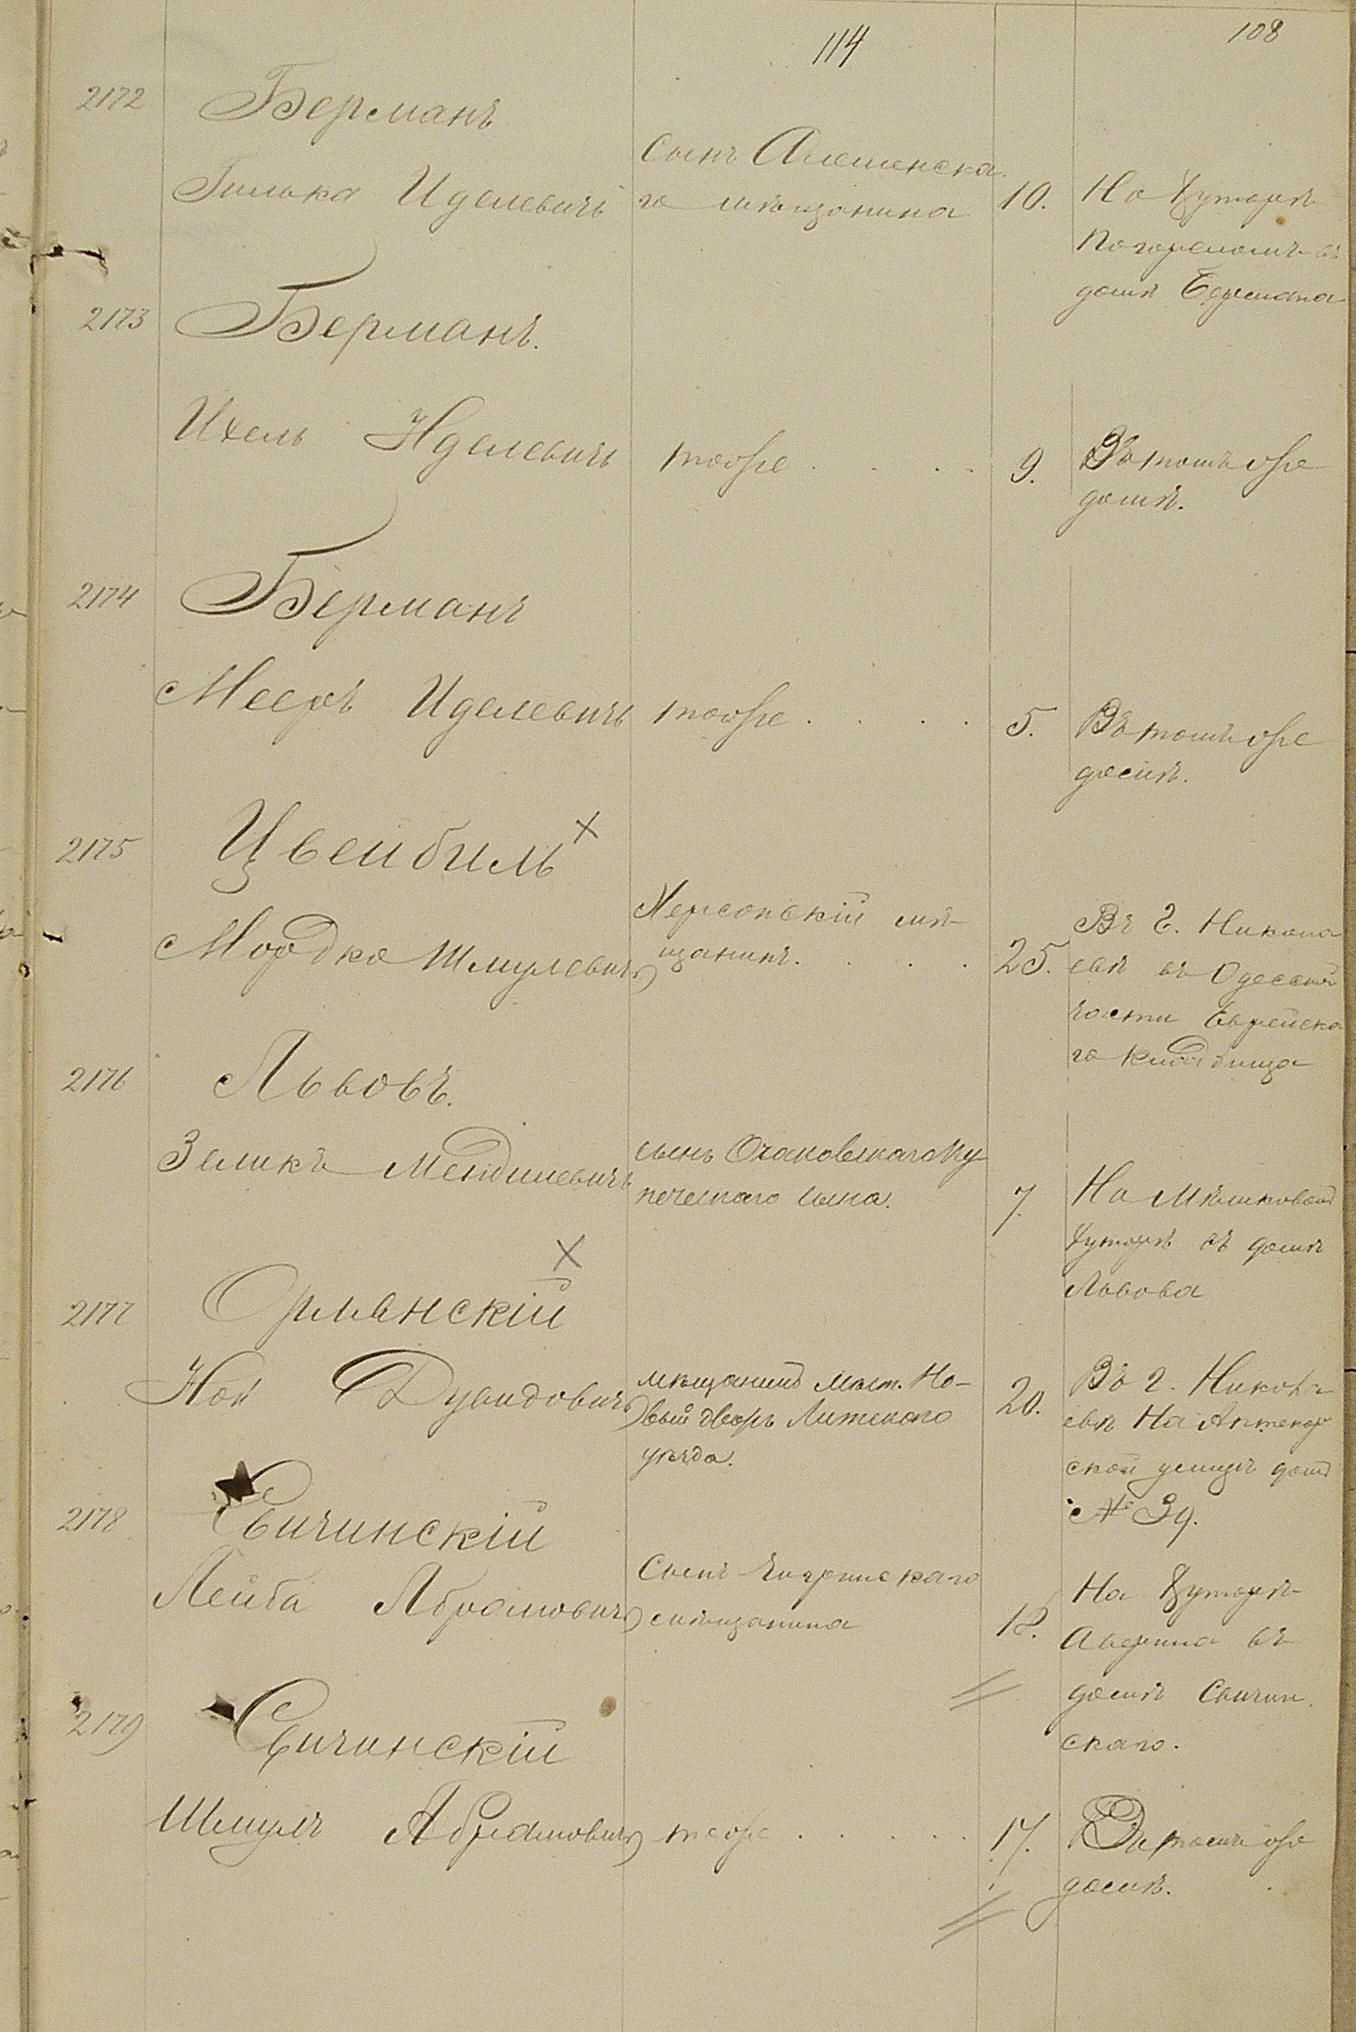 114
108
2172
Берманъ
Гилька Иделевичъ
сынъ Алешенска
го мѣщанина
10.
На Хуторѣ
Погореломъ въ
домѣ Бермана
2173
Берманъ.
Ихель Иделевичъ
тоже
9.
Въ томъ же
домѣ.
2174
Берманъ
Мееръ Иделевичъ
тоже
5.
Въ томъ же
домѣ.
2175
Цвейбиль
Мордко Шмулевичъ
Херсонскій мѣ-
щанинъ.
25.
Въ г. Никола
евѣ въ Одесской
части Еврейска
го кладбища
2176
Львовъ.
Зеликъ Мендилевичъ
сынъ Очаковскаго Ку
печескаго сына.
7.
На Мѣшковомъ
хуторѣ въ домѣ
Львова
2177
Орлянскій
Ной Дувидовичъ
мѣщанинъ мѣст. Но-
вый дворъ Лидскаго
уѣзда.
20.
Въ г. Никола
евѣ На Аптекар
ской улицѣ домъ
№ 39.
2178
Свичинскій
Лейба Абрамовичъ
Сынъ Чигринскаго
мѣщанина
18.
На Хуторѣ
Аверина въ
домѣ Свичин
скаго.
2179
Свичинскій
Шмуль Абрамовичъ
тоже
17.
Въ томъ же
домѣ.